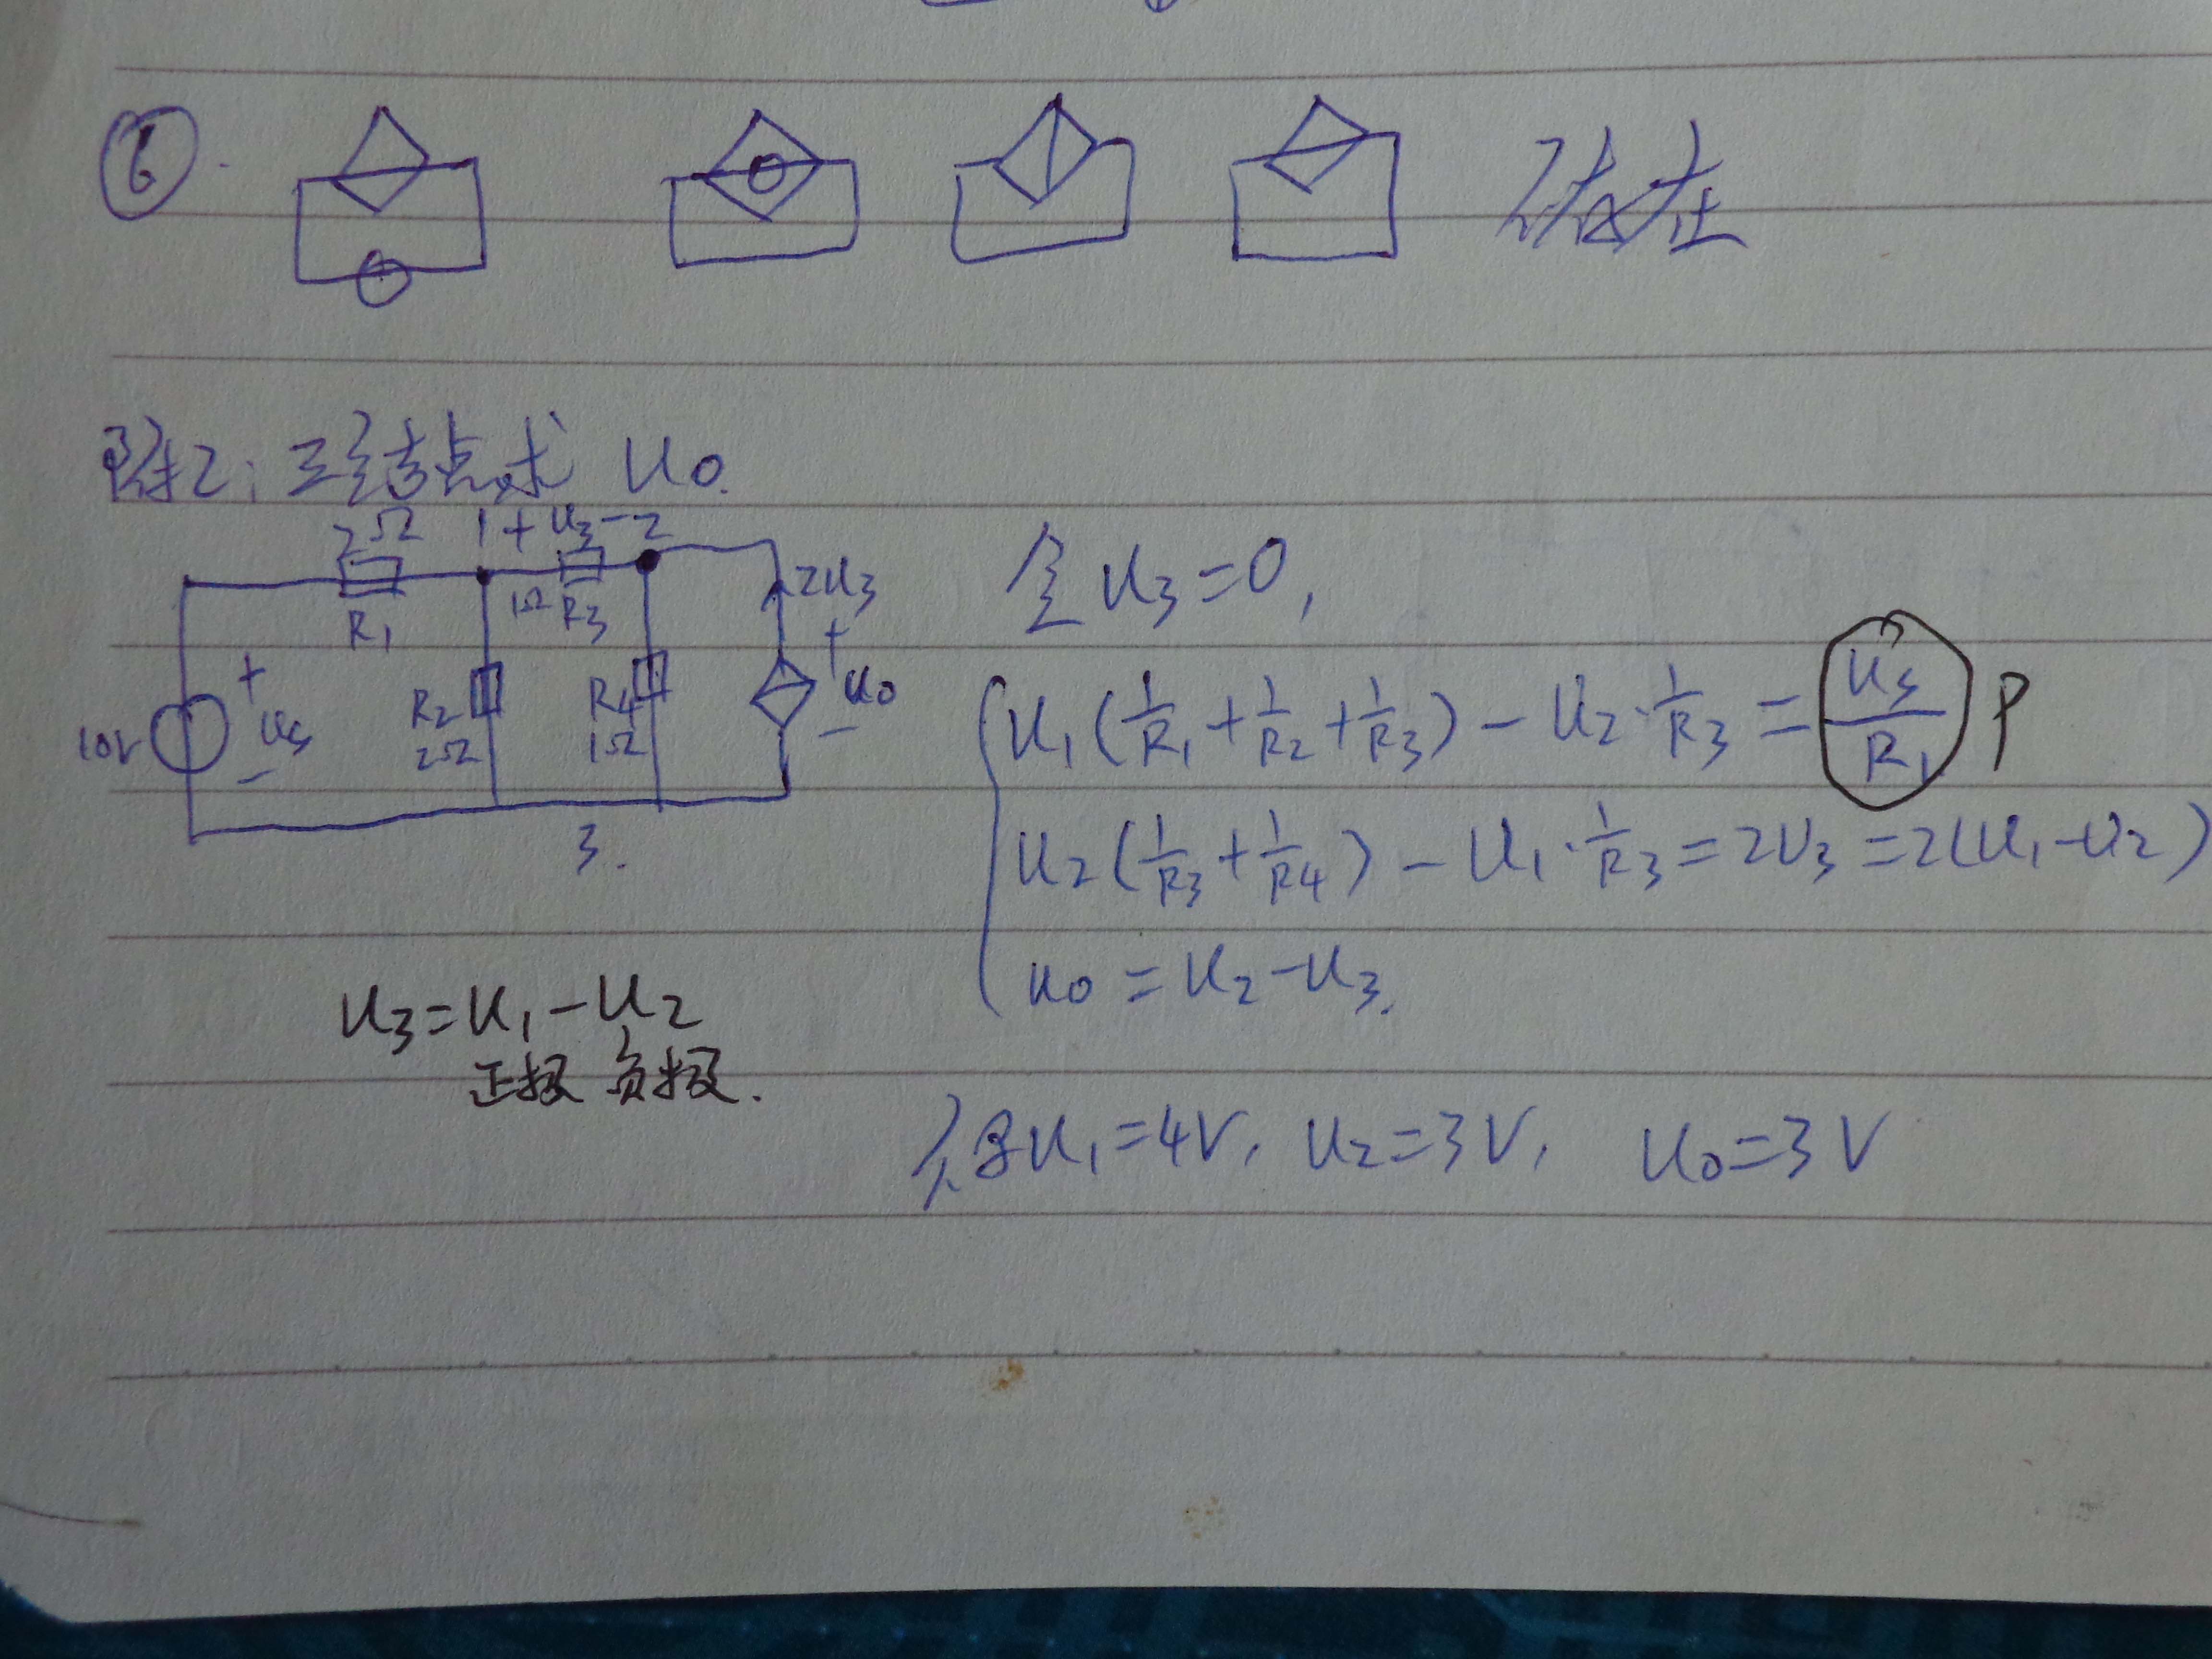 ⑥.
附2:三结点求 U0.
2Ω 1 + U3 - 2
R1 1Ω R3 2U3
10V + Us - R2 2Ω R4 1Ω + U0 -
3.
令 U3=0,
U1(1/R1+1/R2+1/R3)-U2·1/R3=Us/R1
U2(1/R3+1/R4)-U1·1/R3=2U3=2(U1-U2)
U0=U2-U3.
U3=U1-U2
正极 负极.
U1=4V, U2=3V, U0=3V